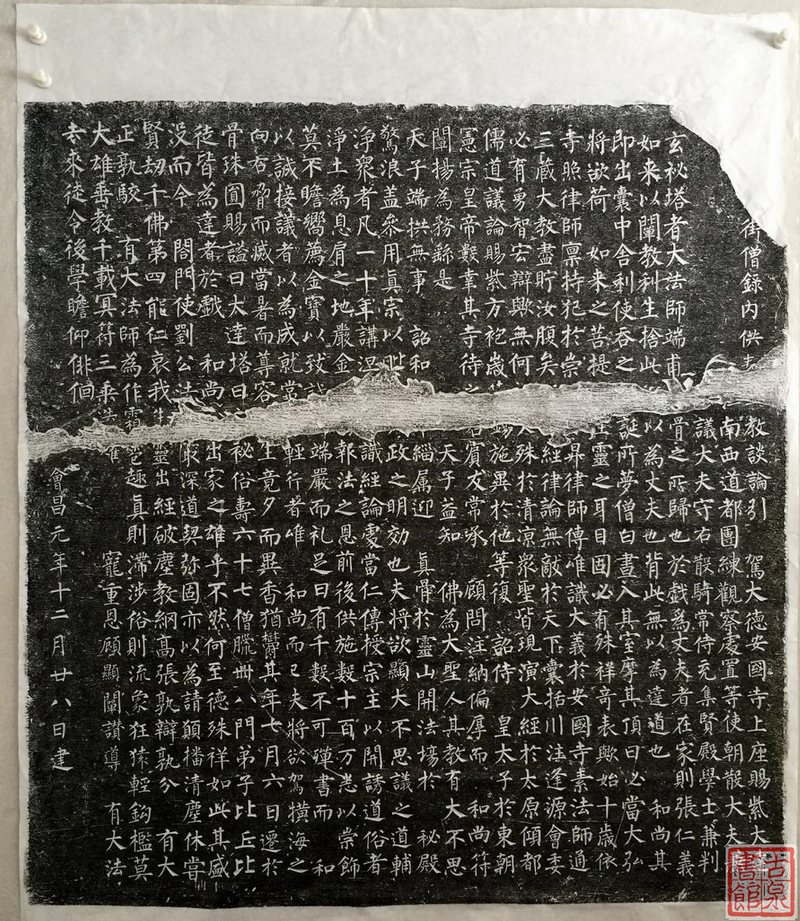 街僧錄內供
教談論引　駕大德安國寺上座賜紫大
南西道都團練觀察處置等使朝散大夫
議大夫守右散騎常侍充集賢殿學士兼判
玄秘塔者大法師端甫
骨之所歸也於戲為丈夫者在家則張仁義
如来以闡教利生捨此
以為丈夫也背此無以為達道也　和尚其
即出囊中舍利使吞之
誕所夢僧白晝入其室摩其頂曰必當大弘
將欲荷　如来之菩提
生靈之耳目固必有殊祥奇表歟始十歲依
寺照律師稟持犯於崇
昇律師傳唯識大義於安國寺素法師通
三蔵大教盡貯汝腹矣
經律論無敵於天下囊括川注逢源會委
必有勇智宏辯歟無何
殊於清涼衆聖皆現演大經於太原傾都
儒道議論賜紫方袍歲
錫施異於他等復　詔侍　皇太子於東朝
憲宗皇帝數幸其寺待之
賓友常承　顧問注納偏厚而　和尚符
闡揚為務繇是
天子益知　佛為大聖人其教有大不思
天子端拱無事　詔和
緇屬迎　真骨於靈山開法場於　秘殿
驚浪盖參用真宗以毗
政之明効也夫將欲顯大不思議之道輔
净衆者凡一十年講涅
識經論處當仁傳授宗主以開誘道俗者
淨土為息肩之地嚴金
報法之恩前後供施數十百万悉以崇飾
莫不瞻嚮薦金寶以致
端嚴而礼足曰有千數不可殫書而　和
以誠接議者以為成就常
輕行者唯　和尚而已夫將欲駕横海之
向右脅而滅當暑而尊容
生竟夕而異香猶鬱其年七月六日遷於
骨珠圓賜謚曰大達塔曰
秘俗壽六十七僧臘卌八門弟子比丘比
徒皆為達者於戲　和尚
出家之雄乎不然何至德殊祥如此其盛
没而今　閤門使劉公法
最深道契弥固亦以為請願播清塵休嘗
賢劫千佛第四能仁哀我生
靈出經破塵教網高張孰辯孰分　有大
正孰駮　有大法師為作霜
雹趣真則滯涉俗則流象狂猿輕鈎檻莫
大雄垂教千載冥符三乘
寵重恩顧顯闡讚導　有大法
去來徒令後學瞻仰俳佪
會昌元年十二月廿八日建